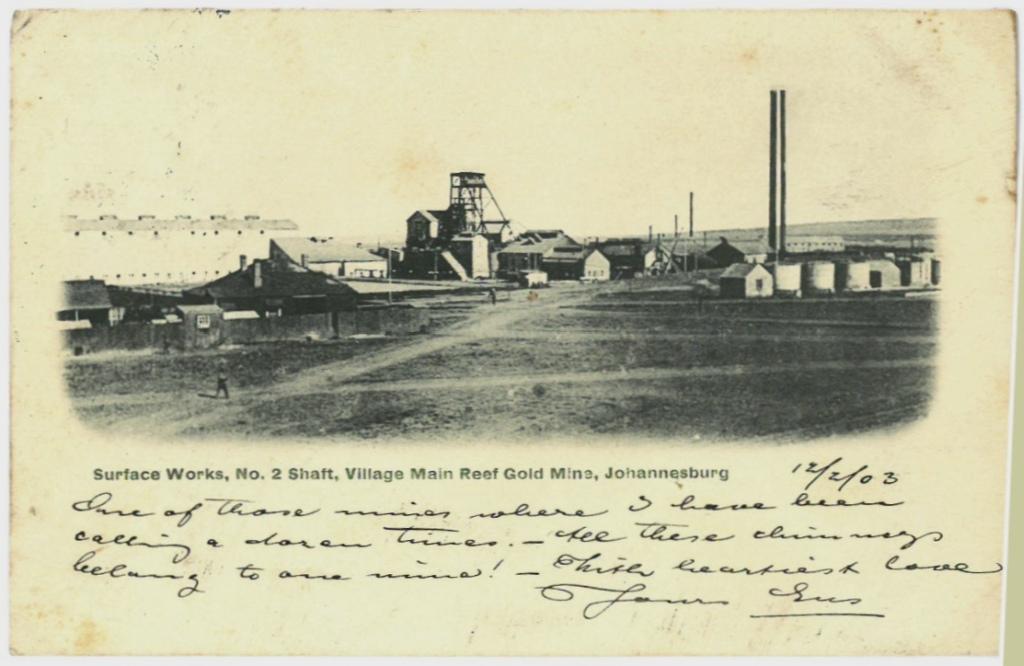 Surface Works, No. 2 Shaft, Village Main Reef Gold Mine, Johannesburg
12/2/03
One of those mines where I have been
calling a dozen times. — All these chimneys
belong to one mine! — With heartiest love
Yours Gus